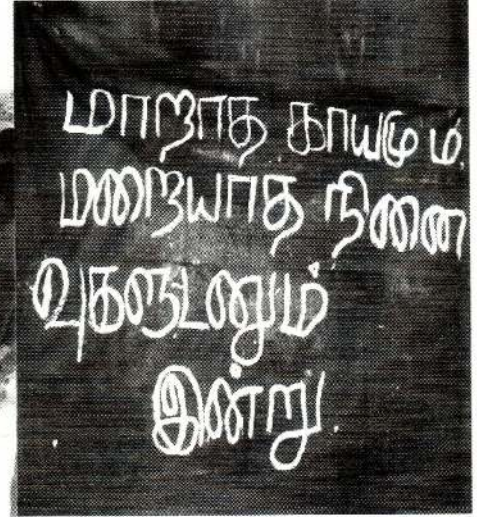 மாறாத காயமும்
மறையாத நினை
வுகளுடனும்
இன்று.